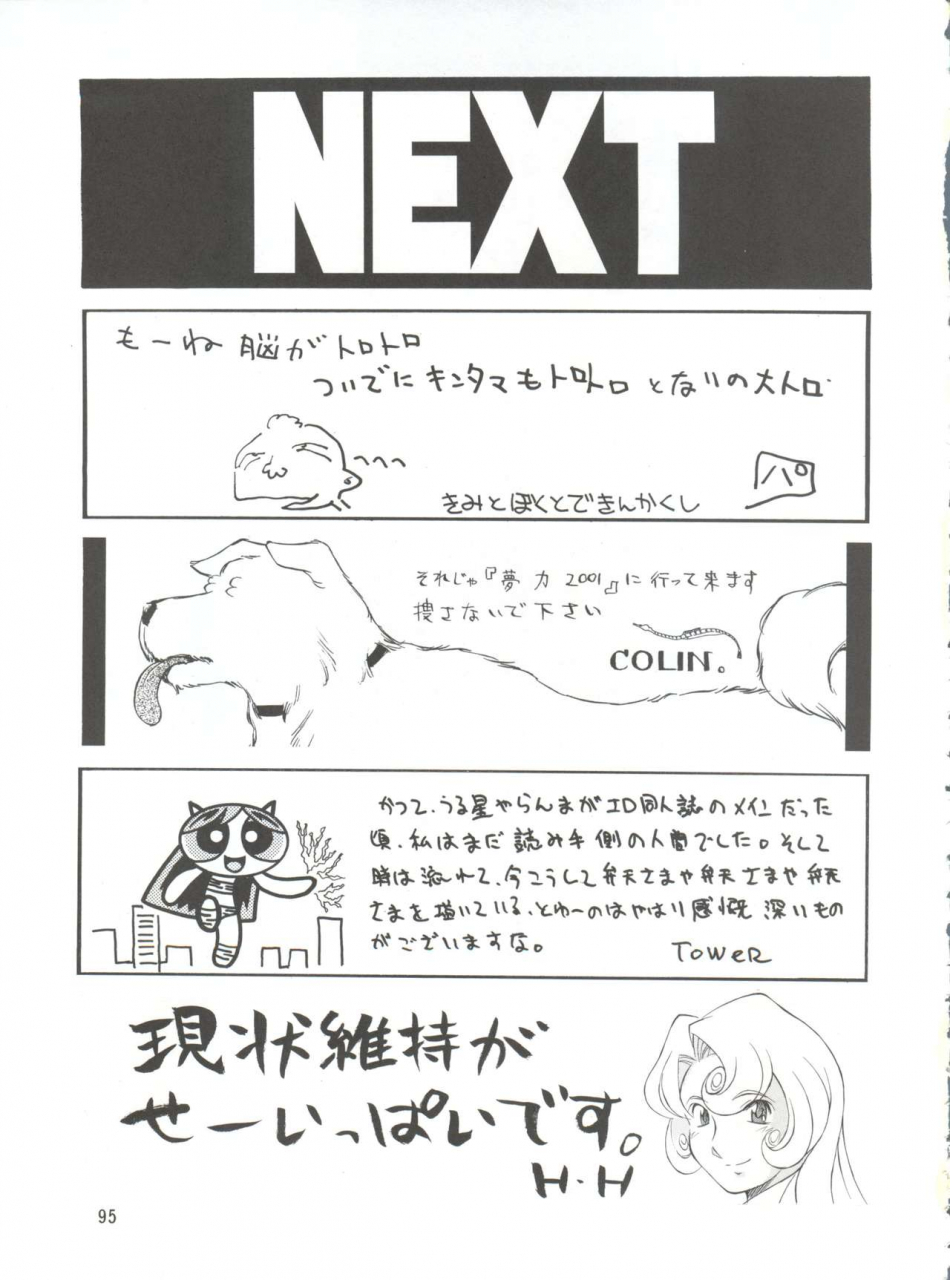 NEXT
もーね 脳がトロトロ
ついでに キンタマもトロトロ とないの大トロ
パ
きみとぼくとできんかくし
それじゃ『夢力 2001』に行って来ます
捜さないで下さい
COLIN。
かつて、うる星やらんまがエロ同人誌のメインだった
頃、私はまだ読み手側の人間でした。そして
時は流れて、今こうして弁天さまや弁天さまや弁天
さまを描いている、とゆーのはやはり感慨深いもの
がございますな。
TOWER
現状維持が
せーいっぱいです。
H・H
95